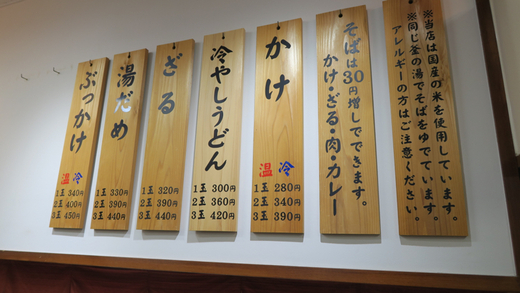 ※当店は国産の米を使用しています。
※同じ釜の湯でそばをゆでています。
アレルギーの方はご注意ください。
そばは30円増しでできます。
かけ・ざる・肉・カレー
かけ
温 冷
1玉 280円
2玉 340円
3玉 390円
冷やしうどん
1玉 300円
2玉 360円
3玉 420円
ざる
1玉 320円
2玉 390円
3玉 440円
湯だめ
1玉 330円
2玉 390円
3玉 440円
ぶっかけ
温 冷
1玉 340円
2玉 400円
3玉 450円